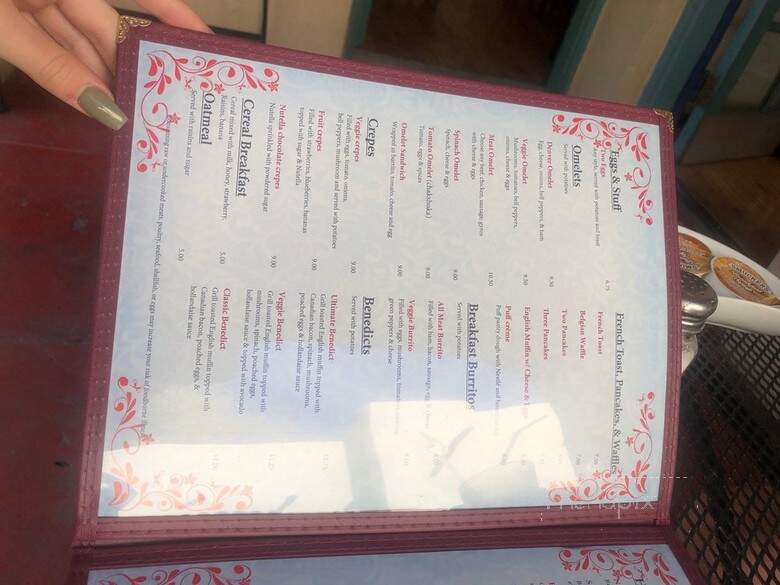 Eggs & Stuff
Two Eggs
Any style, served with potatoes and toast 6.75
Omelets
Served with potatoes
Denver Omelet 9.50
Egg, cheese, onions, bell peppers, & ham
Veggie Omelet 9.50
Mushrooms, tomatoes, bell peppers,
onions, cheese & eggs
Meat Omelet 10.50
Choose any beef, chicken, sausage, gyros
with cheese & eggs
Spinach Omelet 9.00
Spinach, cheese & eggs
Tomato Omelet (chakshuka) 9.00
Tomato, eggs & spices
Omelet sandwich 9.00
Wrapped in burrito, tomato, cheese and egg
Crepes
Veggie crepes 9.00
Filled with eggs, tomato, onions,
bell peppers, mushroom and served with potatoes
Fruit crepes 9.00
Filled with strawberries, blueberries, bananas
topped with sugar & Nutella
Nutella chocolate crepes 9.00
Nutella sprinkled with powdered sugar
Cereal Breakfast
Cereal mixed with milk, honey, strawberry, 5.00
Raisins, banana
Oatmeal
Served with raisins and sugar 5.00
French Toast, Pancakes, & Waffles
French Toast 7.00
Belgian Waffle 7.00
Two Pancakes
Three Pancakes
English Muffin w/ Cheese &
Puff crème
Puff pastry dough with Nestle and
Breakfast Burritos
Served with potatoes
All Meat Burrito
Filled with ham, bacon, sausage, egg & cheese
Veggie Burrito
Filled with eggs, mushrooms, tomatoes,
green peppers & cheese
Benedicts
Served with potatoes
Ultimate Benedict
Grill toasted English muffin topped with
Canadian bacon, spinach, mushrooms,
poached eggs & hollandaise sauce
Veggie Benedict
Grill toasted English muffin topped with
mushrooms, spinach, poached eggs,
hollandaise sauce & topped with avocado
Classic Benedict
Grill toasted English muffin topped with
Canadian bacon, poached eggs, &
hollandaise sauce
raw or undercooked meats, poultry, seafood, shellfish, or eggs may increase your risk of foodborne illness
menupix